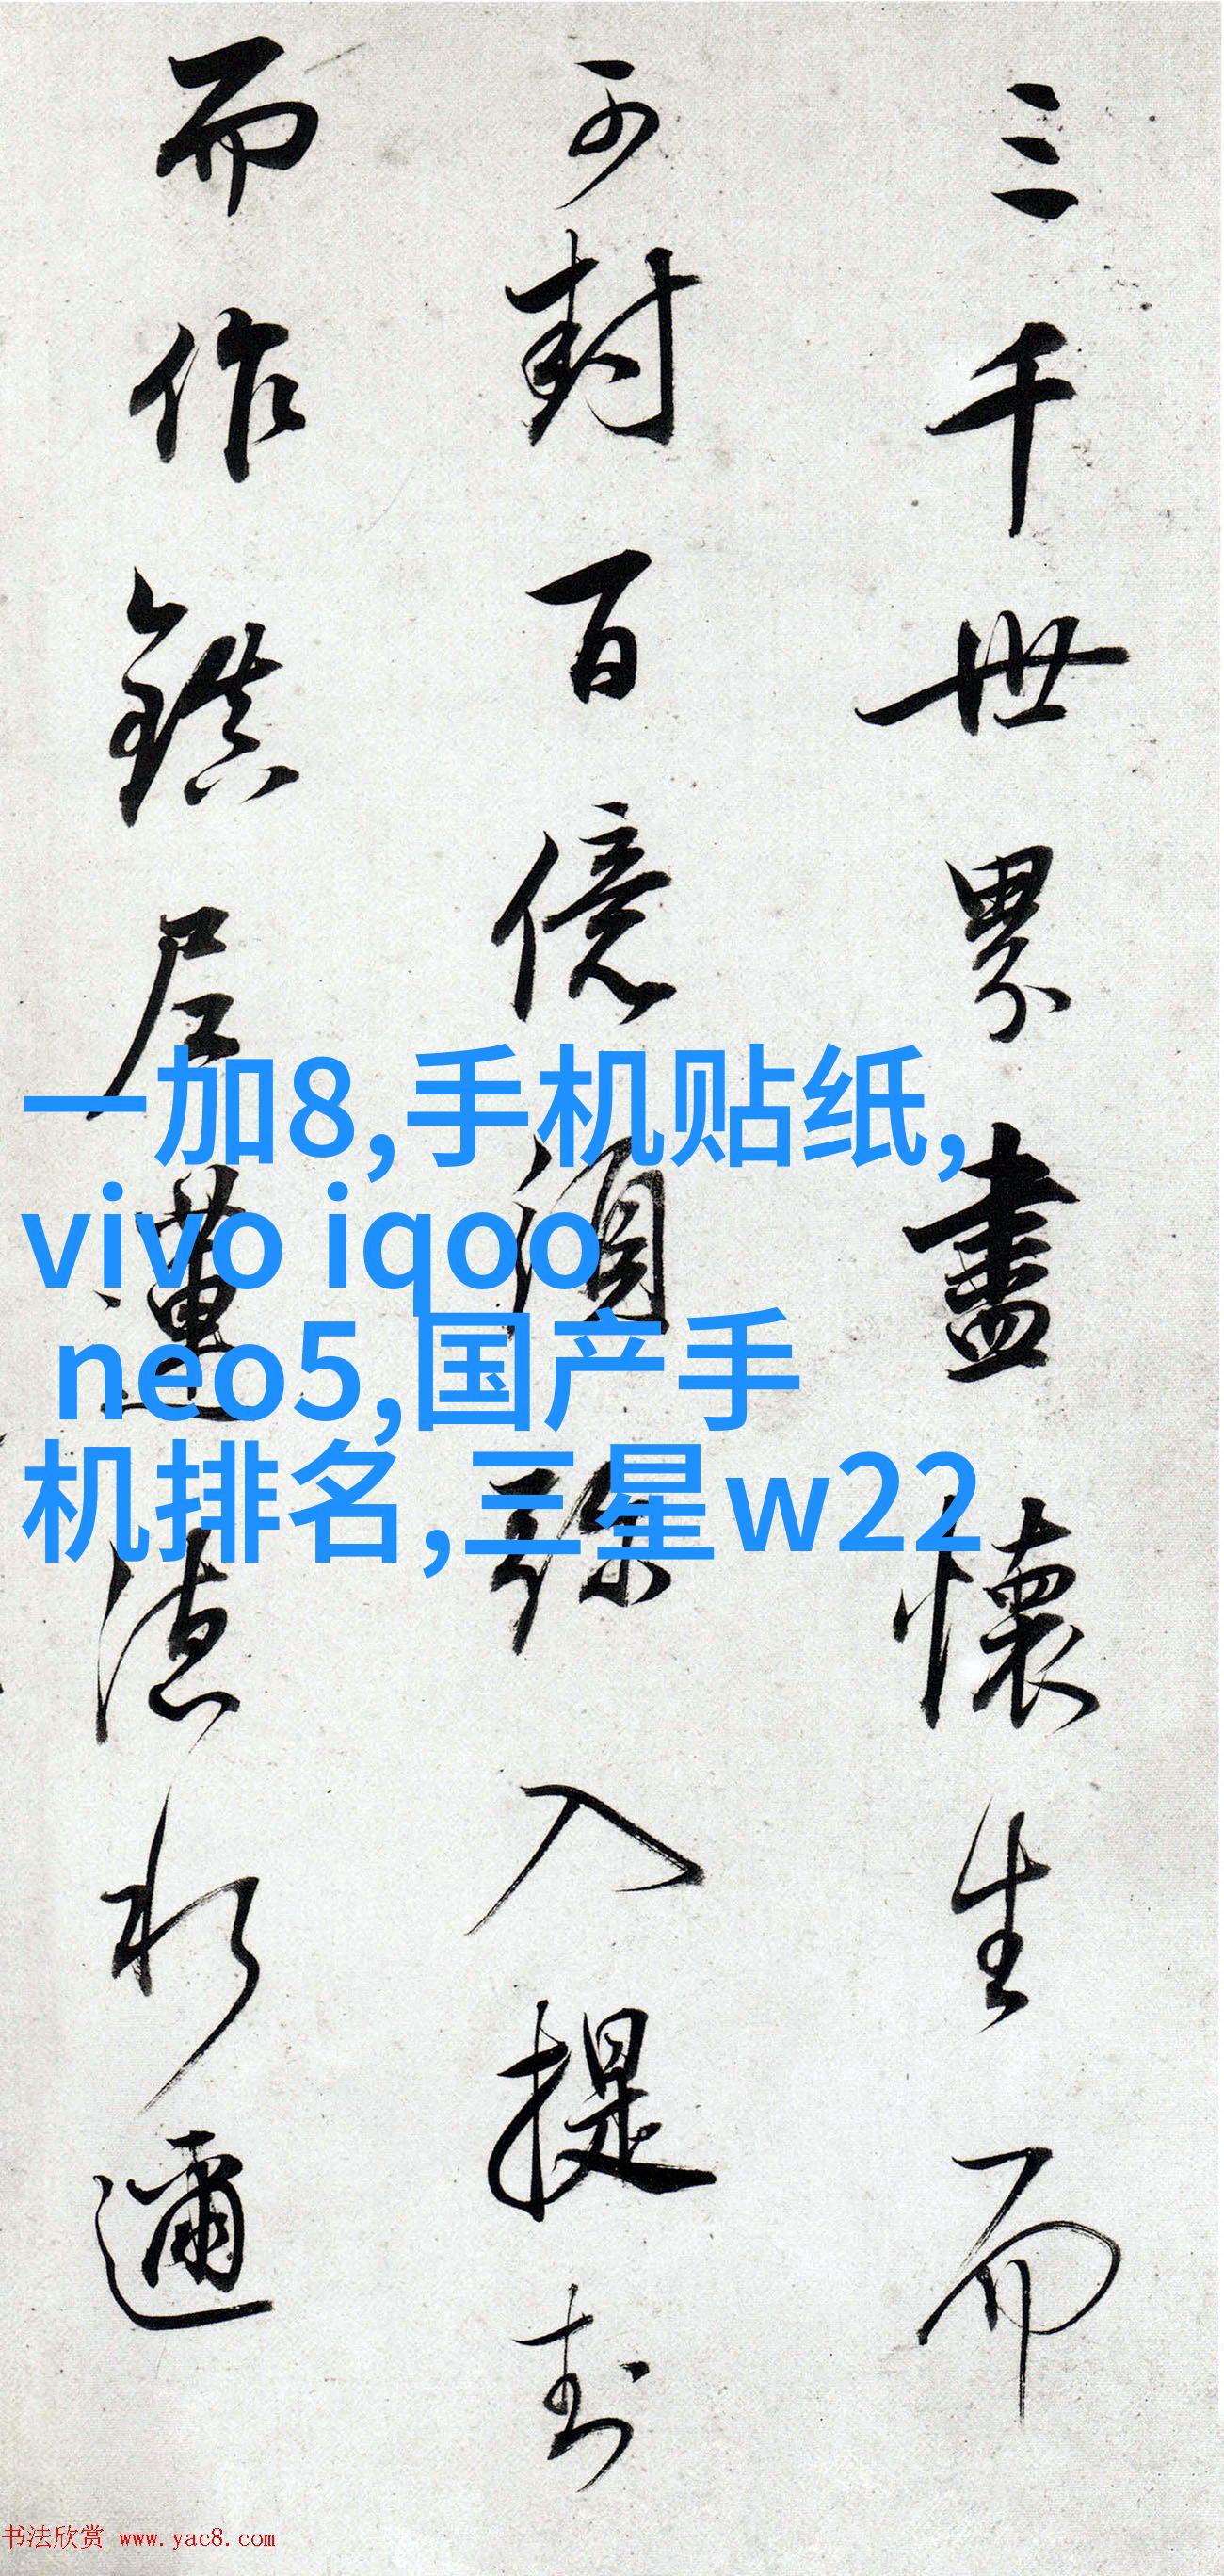 三千世界盡懷生而
可封百億須弥入提封
而作鎮尼蓮德水邇
一加8,手机贴纸,
vivo iqoo
neo5,国产手
机排名,三星w22
书法欣赏 www.yac8.com